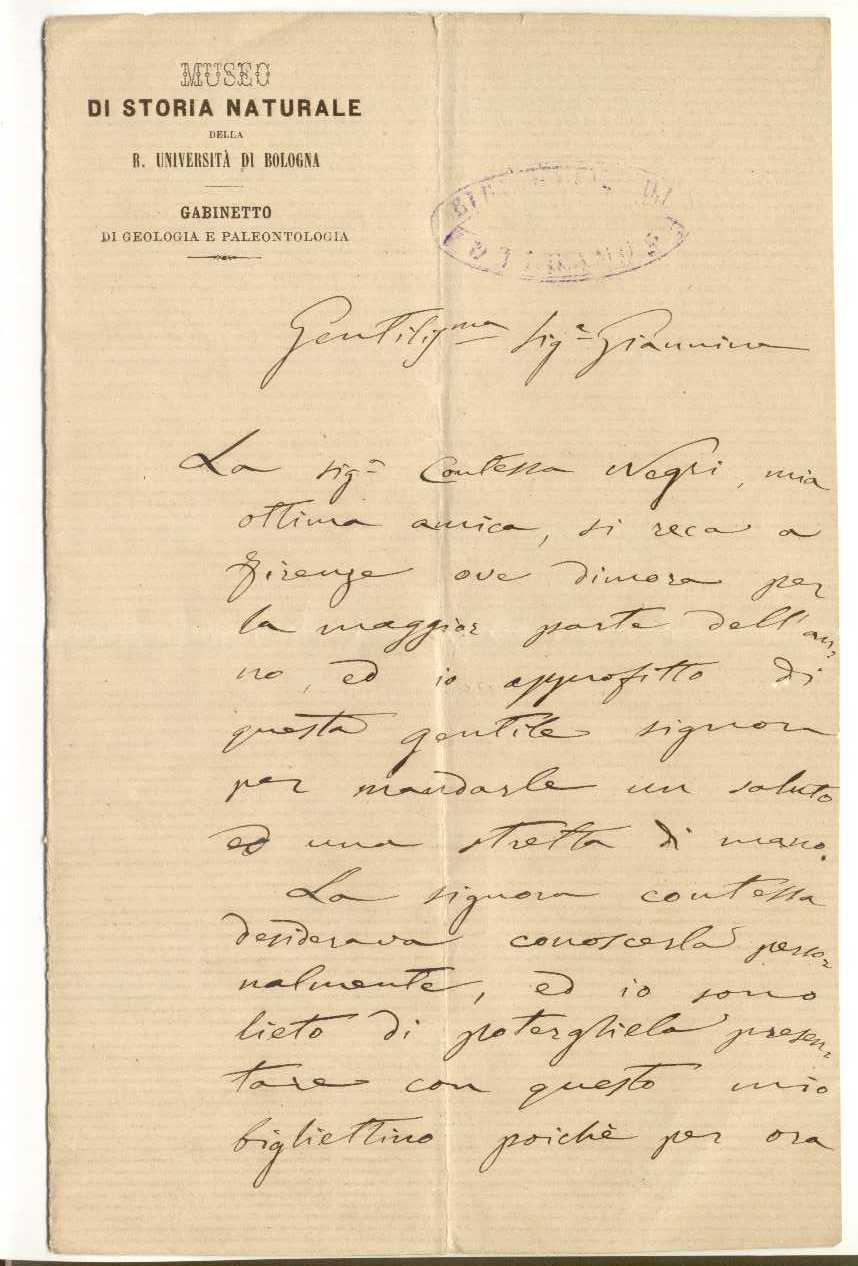 MUSEO
DI STORIA NATURALE
DELLA
R. UNIVERSITÀ DI BOLOGNA
GABINETTO
DI GEOLOGIA E PALEONTOLOGIA
Gentilissma Siga Giannina
La siga Contessa Negri, mia
ottima amica, si reca a
Firenze ove dimora per
la maggior parte dell'an-
no, ed io approfitto di
questa gentile signora
per mandarle un saluto
ed una stretta di mano.
La signora contessa
desiderava conoscerla perso-
nalmente, ed io sono
lieto di poterghiela presen-
tare con questo mio
bigliettino poichè per ora